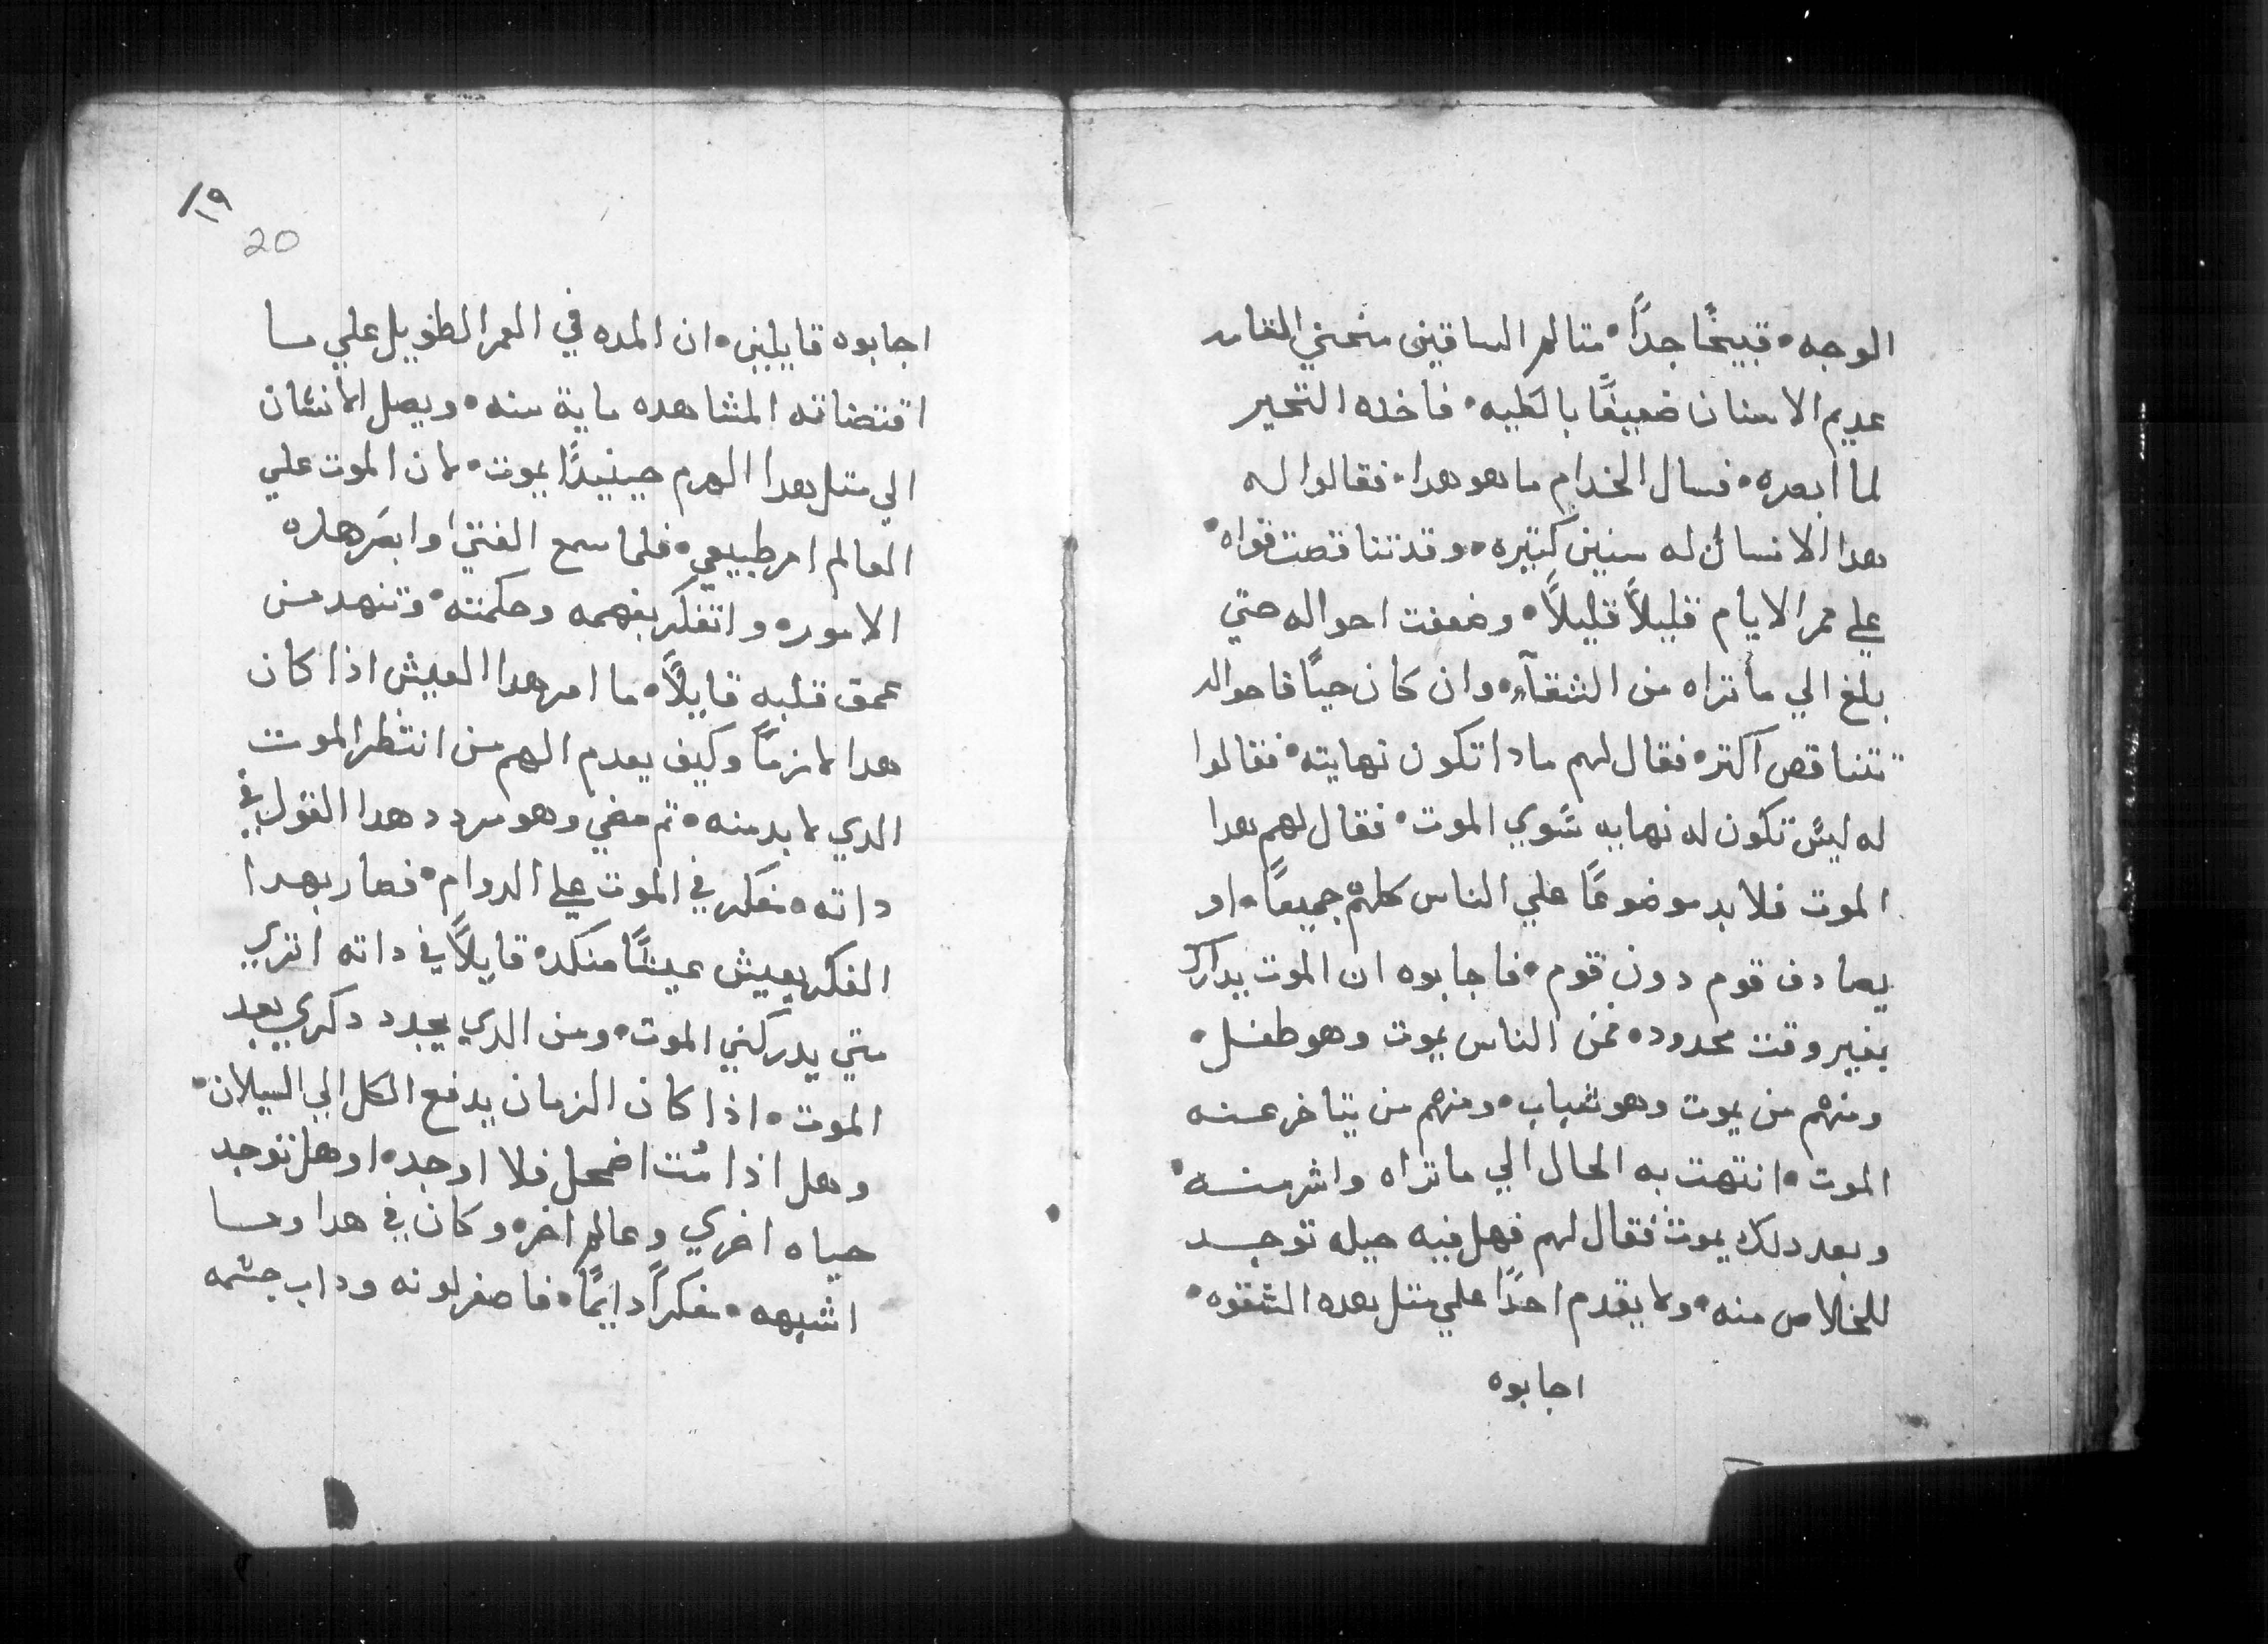 الوجه۰ قبيحًا جدًا۰ متالم الساقين منحني القامه
عديم الاسنان ضعيفًا بالكليه۰ فاخده التحير
لما ابصره۰ فسال الخدام ما هو هدا۰ فقالوا له
هدا الانسان له سنين كتيره۰ وقد تناقصت قواه۰
علي ممر الايام قليلاً قليلاً۰ وضعفت احواله حتي
بلغ الي ما تراه من الشقآء۰ وان كان حيًا فاحواله
تتناقص اكتر۰ فقال لهم مادا تكون نهايته۰ فقالوا
له ليس تكون له نهايه سوي الموت۰ فقال لهم هدا
الموت فلا بد موضوعًا علي الناس كلهم جميعًا۰ او
يصادف قوم دون قوم۰ فاجابوه ان الموت يدارك
بغير وقت محدود۰ فمن الناس يموت وهو طفل۰
ومنهم من يموت وهو شباب۰ ومنهم من يتاخر عنه
الموت۰ انتهت به الحال الي ما تراه واشر منه۰
وبعد دلك يموت۰ فقال لهم فهل فيه حيله توجد
للخلاص منه۰ ولا يقدم احدًا علي متل هده الشقوه۰
اجابوه
١٩
20
اجابوه قايلين۰ ان المده في العمر الطويل علي ما
اقتضاته المشاهده ماية سنه۰ ويصل الانسان
الي متل هدا الهرم حينيدًا يموت۰ لان الموت علي
العالم امر طبيعي۰ فلما سمع الفتي وابصر هده
الامور۰ واتفكر بفهمه وحكمته۰ وتنهد من
عمق قلبه قايلاً۰ ما امر هدا العيش اذا كان
هدا لازمًا وكيف يعدم الهم من انتظر الموت
الدي لا بد منه۰ تم مضي وهو مردد هدا القول في
داته۰ مفكر في الموت علي الدوام۰ فصار بهدا
الفكر يعيش عيشًا منكد۰ قايلاً في داته اتري
متي يدركني الموت۰ ومن الدي يجدد دكري بعد
الموت۰ اذا كان الزمان يدفع الكل الي السيلان۰
وهل اذا مُت اضمحل فلا اوجد۰ او هل توجد
حياه اخري وعالم اخر۰ وكان في هدا وما
اشبهه۰ مفكرًا دايمًا۰ فاصفر لونه وداب جسمه